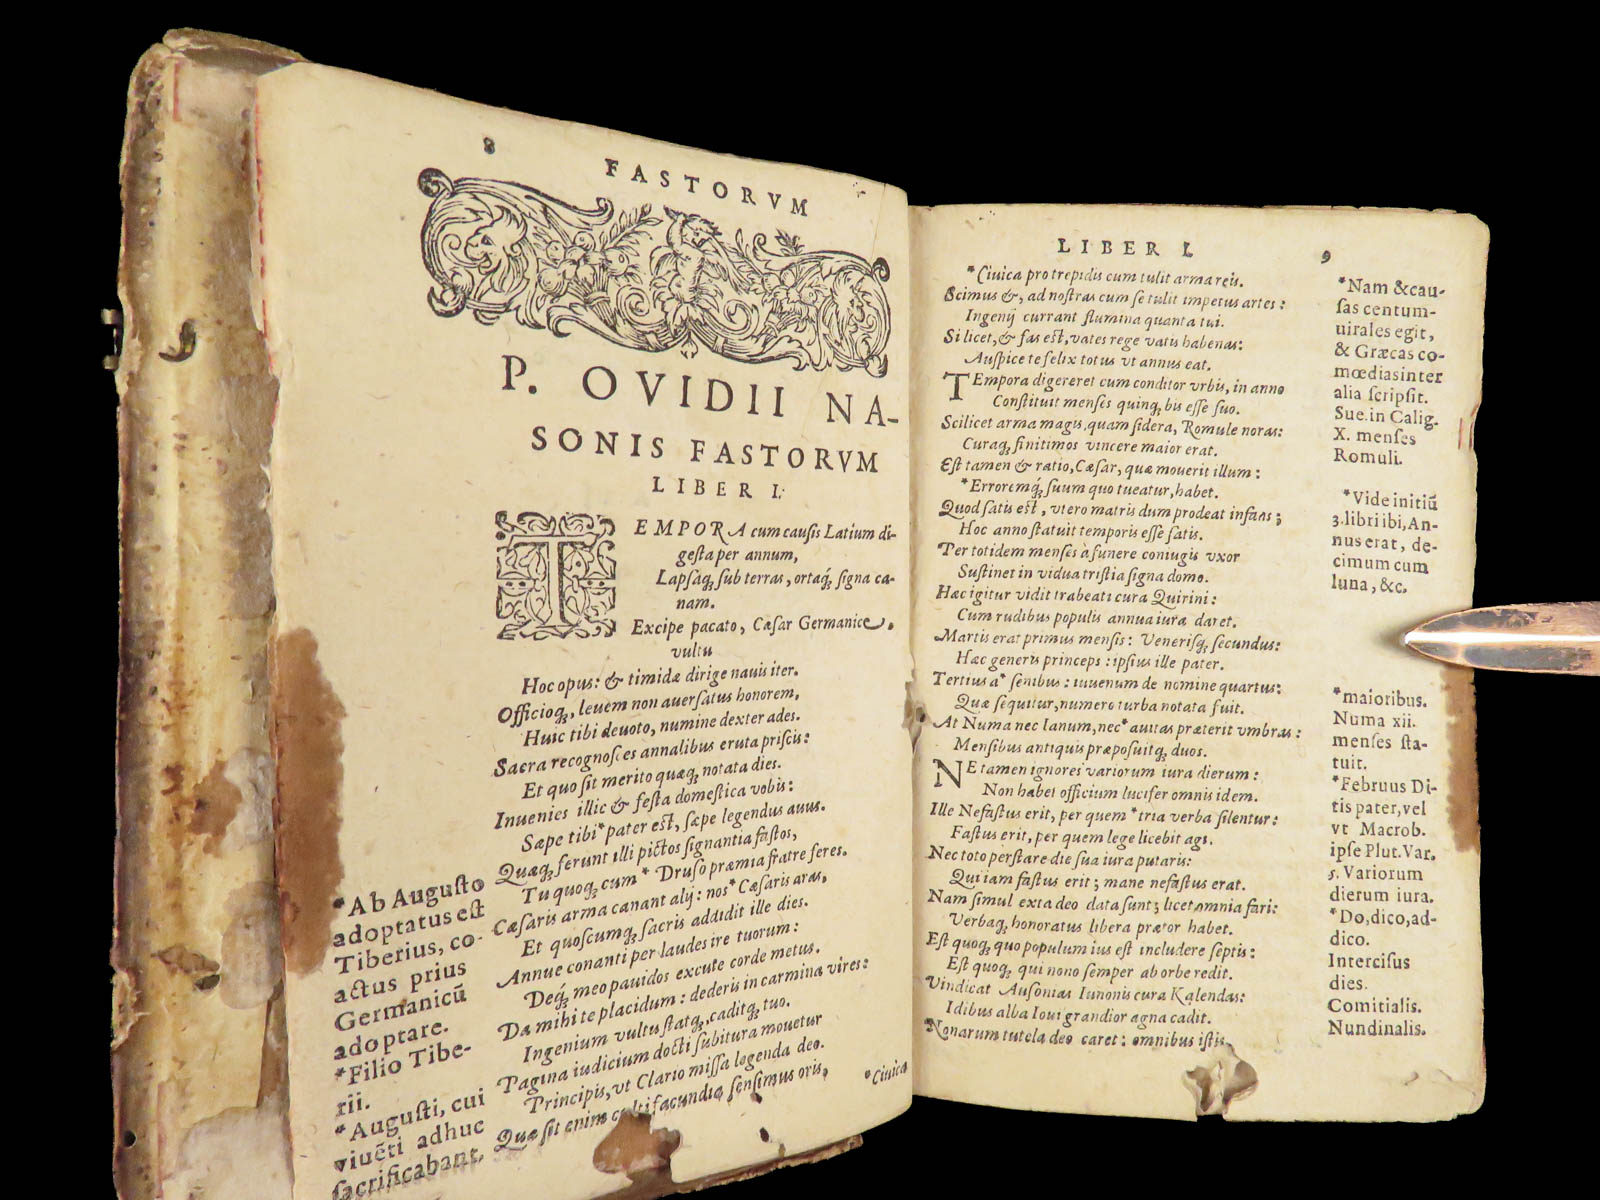 8
FASTORVM
P. OVIDII NA-
SONIS FASTORVM
LIBER I.
TEMPORA cum causis Latium di-
gesta per annum,
Lapsaq́; sub terras, ortaq́; signa ca-
nam.
Excipe pacato, Cæsar Germanice,
vultu
Hoc opus: & timidæ dirige nauis iter.
Officioq́;, leuem non auersatus honorem,
Huic tibi deuoto, numine dexter ades.
Sacra recognosces annalibus eruta priscis:
Et quo sit merito quæq; notata dies.
Inuenies illic & festa domestica vobis:
Sæpe tibi *pater est, sæpe legendus auus.
Quæq; ferunt illi pictos signantia fastos,
Tu quoq; cum * Druso præmia fratre feres.
Cæsaris arma canant alij: nos * Cæsaris aras,
Et quoscumq; sacris addidit ille dies.
Annue conanti per laudes ire tuorum:
Deq́; meo pauidos excute corde metus.
Da mihi te placidum: dederis in carmina vires:
Ingenium vultu statq;, caditq; tuo.
Pagina iudicium docti subitura mouetur
Principis, vt Clario missa legenda deo.
Quæ sit enim culti facundia sensimus oris,
*Ciuica
*Ab Augusto
adoptatus est
Tiberius, co-
actus prius
Germanicū
adoptare.
*Filio Tibe-
rii.
*Augusti, cui
viuēti adhuc
sacrificabant.
LIBER I.
9
*Ciuica pro trepidis cum tulit arma reis.
Scimus &, ad nostras cum se tulit impetus artes:
Ingenij currant flumina quanta tui.
Si licet, & fas est, vates rege vatis habenas:
Auspice te felix totus vt annus eat.
TEmpora digereret cum conditor vrbis, in anno
Constituit menses quinq; bis esse suo.
Scilicet arma magis, quam sidera, Romule noras:
Curaq; finitimos vincere maior erat.
Est tamen & ratio, Cæsar, quæ mouerit illum:
*Erroremq́; suum quo tueatur, habet.
Quod satis est, vtero matris dum prodeat infans;
Hoc anno statuit temporis esse satis.
Per totidem menses à funere coniugis vxor
Sustinet in vidua tristia signa domo.
Hæc igitur vidit trabeati cura Quirini:
Cum rudibus populis annua iura daret.
Martis erat primus mensis: Venerisq; secundus:
Hæc generis princeps: ipsius ille pater.
Tertius a* senibus: iuuenum de nomine quartus:
Quæ sequitur, numero turba notata fuit.
At Numa nec Ianum, nec *auitas præterit vmbras:
Mensibus antiquis præposuitq; duos.
NE tamen ignores variorum iura dierum:
Non habet officium lucifer omnis idem.
Ille Nefastus erit, per quem *tria verba silentur:
Fastus erit, per quem lege licebit agi.
Nec toto perstare die sua iura putaris:
Qui iam fastus erit; mane nefastus erat.
Nam simul exta deo data sunt; licet omnia fari:
Verbaq; honoratus libera prætor habet.
Est quoq; quo populum ius est includere septis:
Est quoq; qui nono semper ab orbe redit.
Vindicat Ausonias Iunonis cura Kalendas:
Idibus alba Ioui grandior agna cadit.
Nonarum tutela deo caret: omnibus istis
*Nam & cau-
sas centum-
uirales egit,
& Græcas co-
mœdias inter
alia scripsit.
Sue. in Calig.
X. menses
Romuli.
*Vide initiū
3. libri ibi, An-
nus erat, de-
cimum cum
luna, &c.
*maioribus.
Numa xii.
menses sta-
tuit.
*Februus Di-
tis pater, vel
vt Macrob.
ipse Plut. Var.
5. Variorum
dierum iura.
*Do, dico, ad-
dico.
Intercisus
dies.
Comitialis.
Nundinalis.